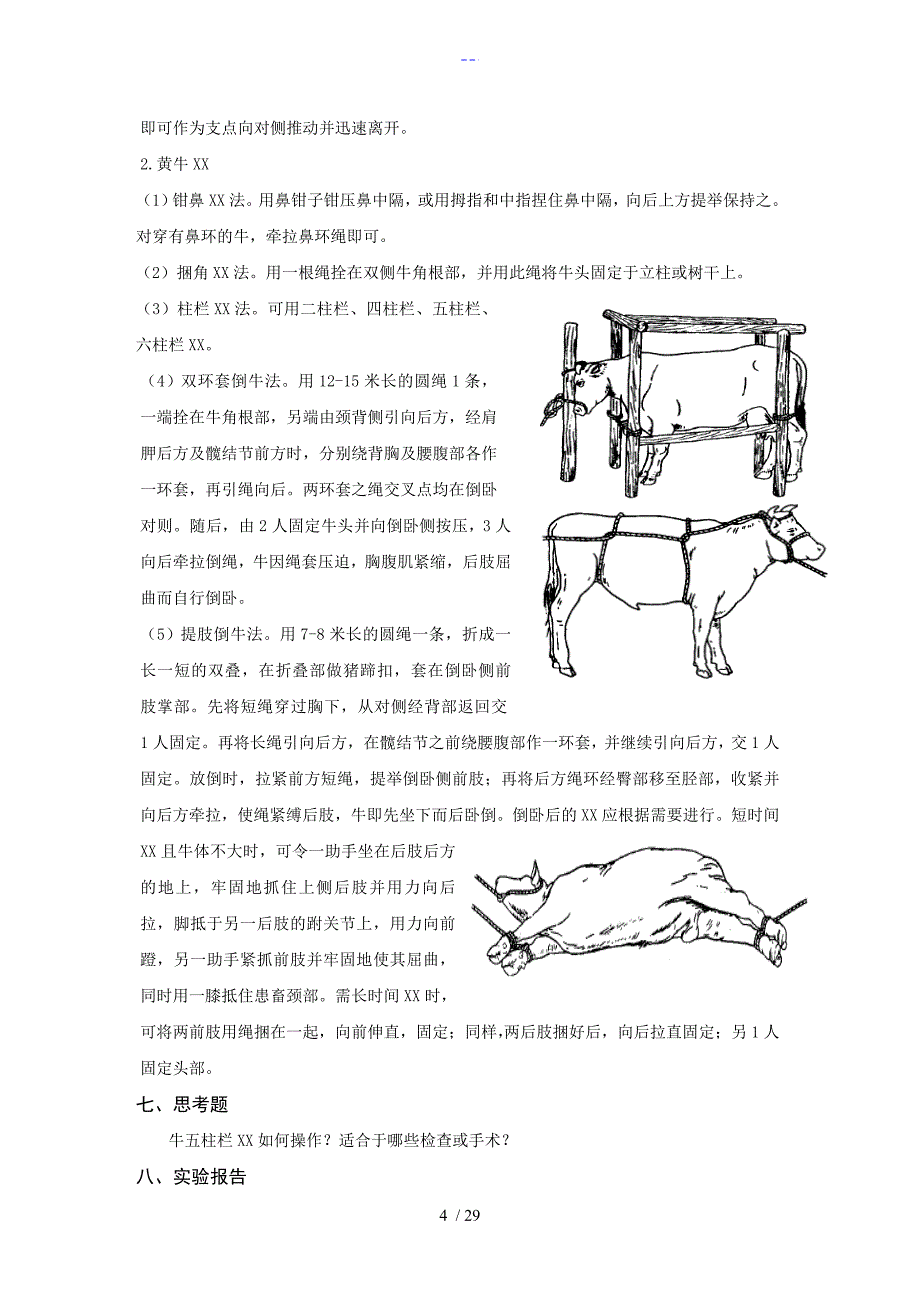 --
即可作为支点向对侧推动并迅速离开。
2.黄牛XX
（1）钳鼻XX法。用鼻钳子钳压鼻中隔，或用拇指和中指捏住鼻中隔，向后上方提举保持之。
对穿有鼻环的牛，牵拉鼻环绳即可。
（2）捆角XX法。用一根绳拴在双侧牛角根部，并用此绳将牛头固定于立柱或树干上。
（3）柱栏XX法。可用二柱栏、四柱栏、五柱栏、
六柱栏XX。
（4）双环套倒牛法。用12-15米长的圆绳1条，
一端拴在牛角根部，另端由颈背侧引向后方，经肩
胛后方及髋结节前方时，分别绕背胸及腰腹部各作
一环套，再引绳向后。两环套之绳交叉点均在倒卧
对则。随后，由2人固定牛头并向倒卧侧按压，3人
向后牵拉倒绳，牛因绳套压迫，胸腹肌紧缩，后肢屈
曲而自行倒卧。
（5）提肢倒牛法。用7-8米长的圆绳一条，折成一
长一短的双叠，在折叠部做猪蹄扣，套在倒卧侧前
肢掌部。先将短绳穿过胸下，从对侧经背部返回交
1人固定。再将长绳引向后方，在髋结节之前绕腰腹部作一环套，并继续引向后方，交1人
固定。放倒时，拉紧前方短绳，提举倒卧侧前肢；再将后方绳环经臀部移至胫部，收紧并
向后方牵拉，使绳紧缚后肢，牛即先坐下而后卧倒。倒卧后的XX应根据需要进行。短时间
XX且牛体不大时，可令一助手坐在后肢后方
的地上，牢固地抓住上侧后肢并用力向后
拉，脚抵于另一后肢的跗关节上，用力向前
蹬，另一助手紧抓前肢并牢固地使其屈曲，
同时用一膝抵住患畜颈部。需长时间XX时，
可将两前肢用绳捆在一起，向前伸直，固定；同样，两后肢捆好后，向后拉直固定；另1人
固定头部。
七、思考题
牛五柱栏XX如何操作？适合于哪些检查或手术？
八、实验报告
4 / 29